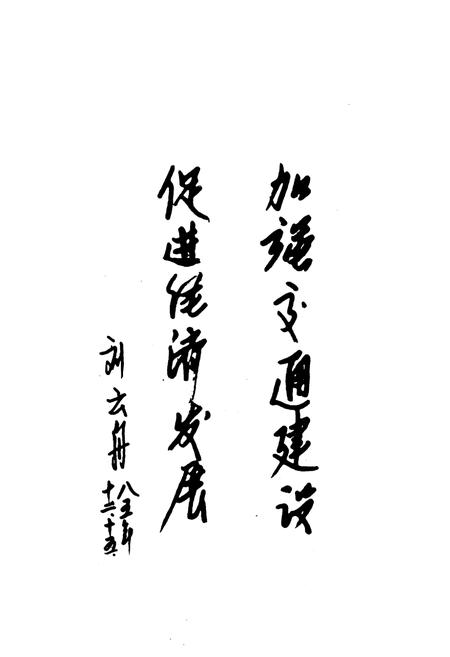 加强交通建设
促进经济发展
刘云舟
八五年
十二.十五.